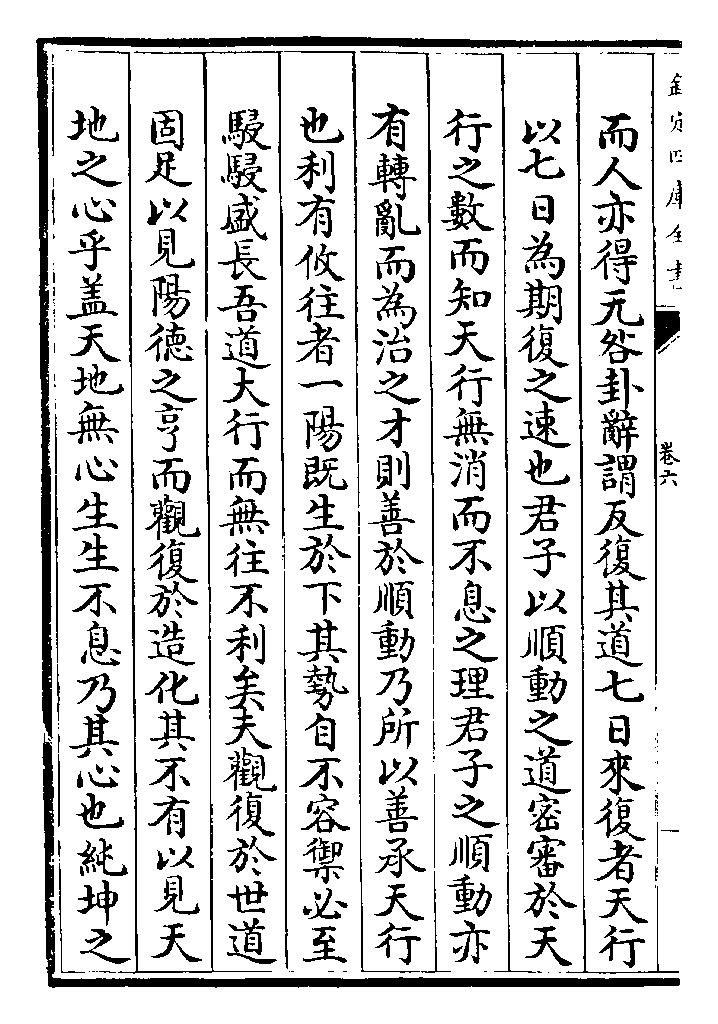 欽定四庫全書
卷六
而人亦得无咎卦辭謂反復其道七日來復者天行
以七日為期復之速也君子以順動之道密審於天
行之數而知天行無消而不息之理君子之順動亦
有轉亂而為治之才則善於順動乃所以善承天行
也利有攸往者一陽既生於下其勢自不容禦必至
駸駸盛長吾道大行而無往不利矣夫觀復於世道
固足以見陽德之亨而觀復於造化其不有以見天
地之心乎盖天地無心生生不息乃其心也純坤之